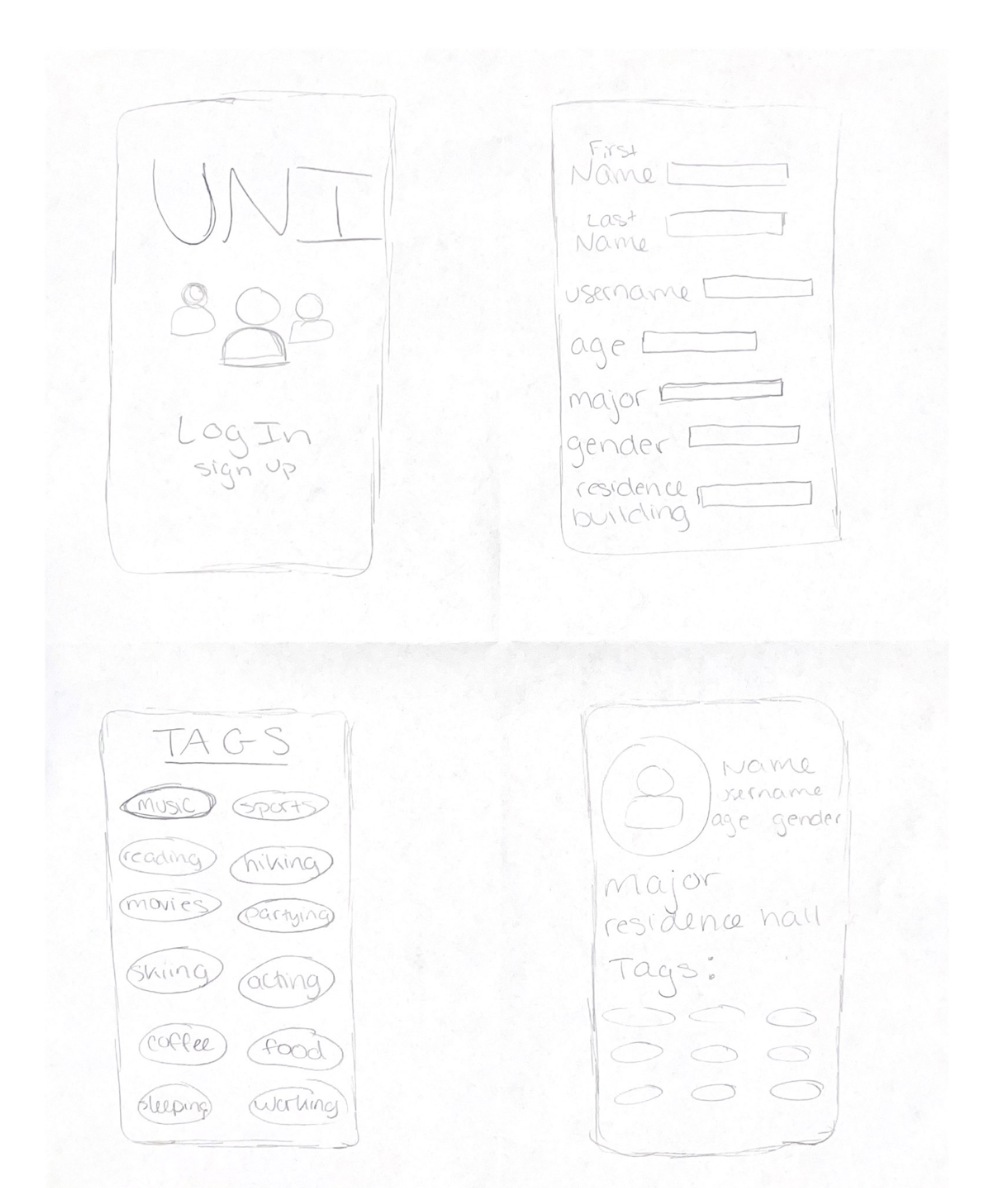 UNI
Log In
sign up
First
Name
Last
Name
username
age
major
gender
residence
building
TAGS
music sports
reading hiking
movies partying
skiing acting
coffee food
sleeping working
Name
username
age gender
major
residence hall
Tags: